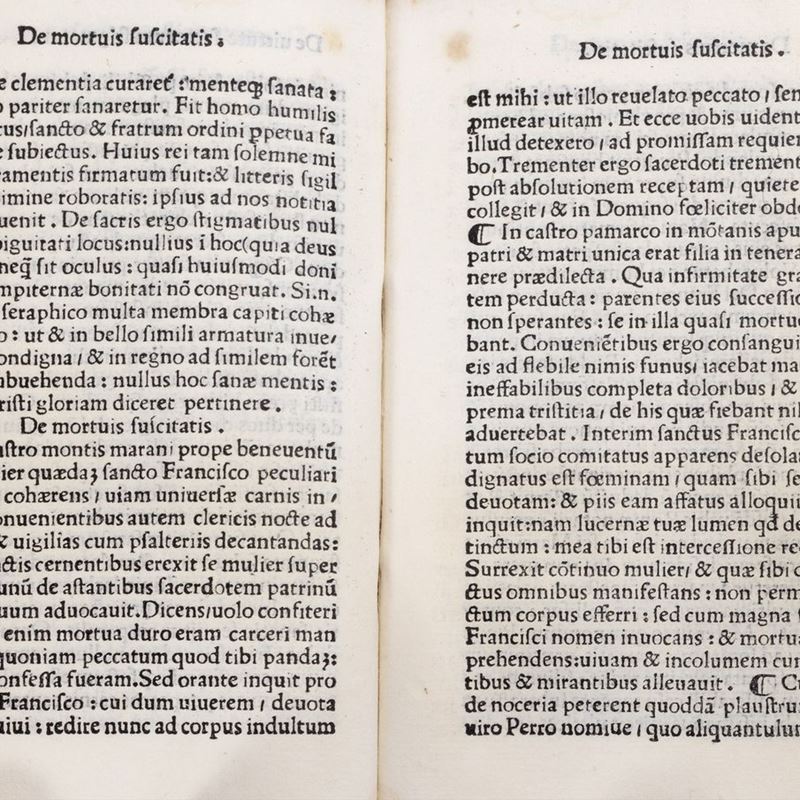 De mortuis ſuſcitatis.
e clementia curaret̃ : menteqꝫ ſanata :
o pariter ſanaretur. Fit homo humilis
tus/ſancto & fratrum ordini ꝑpetua fa
e ſubiectus. Huius rei tam ſolemne mi
ramentis firmatum fuit:& litteris ſigil
imine roboratis: ipſius ad nos notitia
uenit . De ſacris ergo ſtigmatibus nul
biguitati locus:nullius ī hoc(quia deus
neq̃ ſit oculus : quaſi huiuſmodi doni
mpiternæ bonitati nō congruat. Si.n.
ſeraphico multa membra capiti cohæ
o : ut & in bello ſimili armatura inue/
ondigna / & in regno ad ſimilem forēt
buehenda : nullus hoc ſanæ mentis :
riſti gloriam diceret pertinere .
De mortuis ſuſcitatis .
aſtro montis marani prope beneuentū
ier quædaʒ ſancto Franciſco peculiari
cohærens / uiam uniuerſæ carnis in /
onuenientibus autem clericis nocte ad
& uigilias cum pſalteriis decantandas:
ctis cernentibus erexit ſe mulier ſuper
unū de aſtantibus ſacerdotem patrinū
uum aduocauit.Dicens/uolo confiteri
enim mortua duro eram carceri man
quoniam peccatum quod tibi pandaʒ:
onfeſſa fueram.Sed orante inquit pro
Franciſco : cui dum uiuerem / deuota
uiui : redire nunc ad corpus indultum
De mortuis ſuſcitatis .
eſt mihi : ut illo reuelato peccato / ſem
ꝓmerear uitam . Et ecce uobis uident
illud detexero / ad promiſſam requiem
bo.Trementer ergo ſacerdoti trement
poſt abſolutionem receptam / quiete
collegit / & in Domino fœliciter obdo
¶ In caſtro pamarco in mōtanis apu
patri & matri unica erat filia in tenera
nere prædilecta . Qua infirmitate gra
tem perducta : parentes eius ſucceſſio
non ſperantes : ſe in illa quaſi mortuo
bant. Conueniētibus ergo conſangui
eis ad flebile nimis funus/ iacebat ma
ineffabilibus completa doloribus / &
prema triſtitia / de his quæ fiebant nil
aduertebat . Interim ſanctus Franciſc
tum ſocio comitatus apparens deſola
dignatus eſt fœminam / quam ſibi ſe
deuotam: & piis eam affatus alloquii
inquit:nam lucernæ tuæ lumen qd̄ de
tinctum : mea tibi eſt interceſſione re
Surrexit cōtinuo mulier/ & quæ ſibi d
ctus omnibus manifeſtans : non perm
ctum corpus efferri : ſed cum magna
Franciſci nomen inuocans : & mortua
prehendens:uiuam & incolumem cun
tibus & mirantibus alleuauit. ¶ Cu
de noceria peterent quoddā plauſtru
uiro Perro nomiue / quo aliquantulum